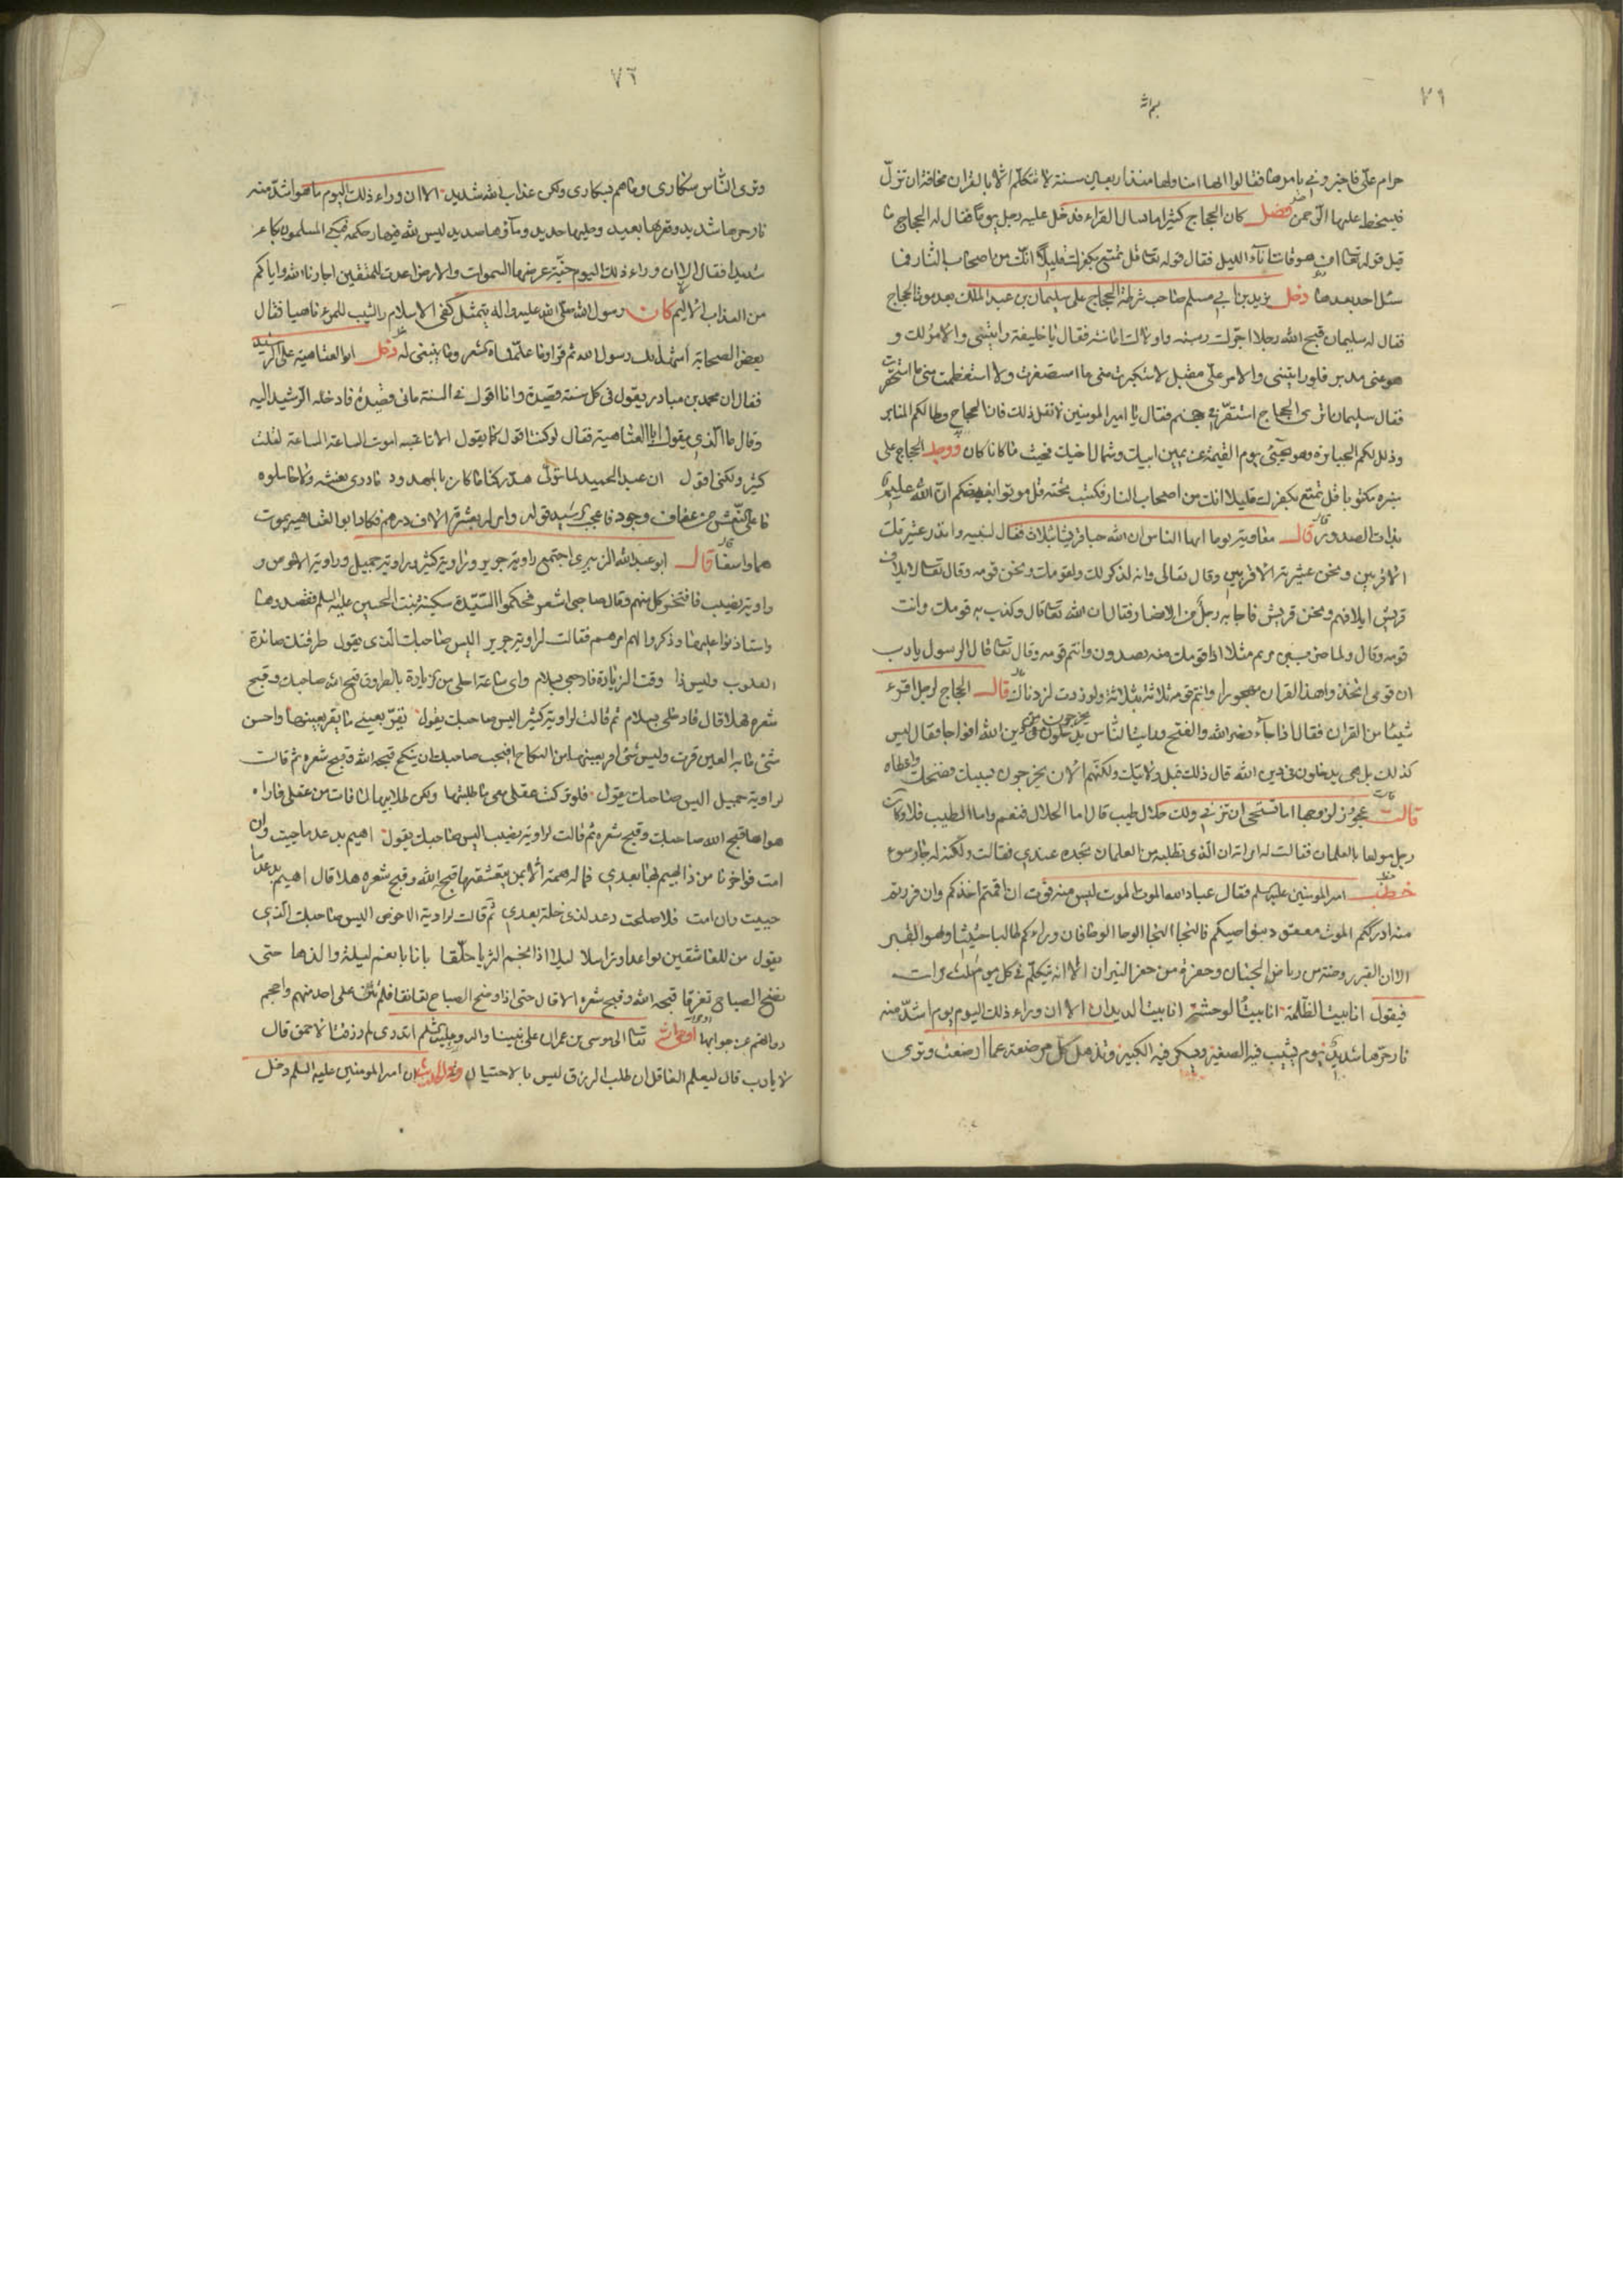 ٧٩
بم الله
حرام علي فاجيزوني بامرها فقالوا انها امنا ولها منذ اربعين سنة لا تتكلم الا بالقران مخافة ان تزل
فيسخط عليها الرحمن فصل كان الحجاج كثيرا ما يسال القراء فدخل عليه رجل يوما فقال له الحجاج ما
قبل قوله تعا امن هو قانت آناء الليل فقال قوله تعا قل تمتع بكفرك قليلا انك من اصحاب النار فما
سئل احد بعدها دخل يزيد بن ابي مسلم صاحب شرطة الحجاج على سليمان بن عبد الملك بعد موت الحجاج
فقال له سليمان قبح الله رجلا اجرك رسنه واولاك امانته فقال يا خليفة رايتني والامر لك و
هو عني مدبر فلو رايتني والامر علي مقبل لاستكبرت مني ما استصغرت ولا استعظمت مني ما استحقرت
فقال سليمان اترى الحجاج استقر في جهنم فقال يا امير المومنين لا تقل ذلك فان الحجاج وطا لكم المنابر
وذلل لكم الجبابرة وهو يجئ يوم القيمة عن يمين ابيك وشمال اخيك فحيث ما كانا كان ووجد الحجاج على
منبره مكتوبا قل تمتع بكفرك قليلا انك من اصحاب النار فكتب تحته قل موتوا بغيظكم ان الله عليم
بذات الصدور قال معاوية يوما ايها الناس ان الله حبا قريشا بثلاث فقال لنبيه وانذر عشيرتك
الاقربين ونحن عشيرته الاقربين وقال تعالى وانه لذكر لك ولقومك ونحن قومه وقال تعالى لايلاف
قريش ايلافهم ونحن قريش فاجابه رجل من الانصار فقال ان الله تعا قال وكذب به قومك وانت
قومه وقال ولما ضرب ابن مريم مثلا اذا قومك منه يصدون وانتم قومه وقال تعا قال الرسول يا رب
ان قومي اتخذوا هذا القران مهجورا وانتم قومه ثلاثة بثلاثة ولو زدت لزدناك قال الحجاج لرجل اقرء
شيئا من القران فقال اذا جاء نصر الله والفتح ورايت الناس يخرجون من دين الله افواجا فقال ليس
كذلك بل هي يدخلون في دين الله قال ذلك قبل ولايتك ولكنهم الان يخرجون بسببك فضحك واعطاه
قالت عجوز لزوجها اما تستحي ان تزني ولك حلال طيب قال اما الحلال فنعم واما الطيب فلا وكان
رجل مولعا بالغلمان فقالت له امراته ان الذي تطلبه من الغلمان تجده عندي فقالت ولكنه له جار سوء
خطب امير المومنين عليه السلم فقال عباد الله الموت الموت ليس منه فوت ان اقمتم اخذكم وان فررتم
منه ادرككم الموت معقود بنواصيكم فالنجا النجا الوحا الوحا فان وراءكم طالبا حثيثا وهو القبر
الا ان القبر روضة من رياض الجنان وحفرة من حفر النيران الا انه يتكلم في كل يوم ثلث مرات
فيقول انا بيت الظلمة انا بيت الوحشة انا بيت الديدان الا ان وراء ذلك اليوم يوم اشد منه
نار حرها شديد يوم يشيب فيه الصغير ويبكي فيه الكبير وتذهل كل مرضعة عما ارضعت وترى
٧٦
وترى الناس سكارى وما هم بسكارى ولكن عذاب الله شديد الا ان وراء ذلك اليوم ما هو اشد منه
نار حرها شديد وقعرها بعيد وحليها حديد وماؤها صديد ليس لله فيها رحمة فبكى المسلمون بكاء
شديدا فقال الا ان وراء ذلك اليوم جنة عرضها السموات والارض اعدت للمتقين اجارنا الله واياكم
من العذاب الاليم كان رسول الله صلى الله عليه واله يتمثل كفى الاسلام والشيب للمرء ناهيا فقال
بعض الصحابة اشهد انك رسول الله ثم قرا وما علمناه الشعر وما ينبغي له دخل ابو العتاهية على الرشيد
فقال ان محمد بن مبادر يقول في كل سنة قصيدة وانا اقول في السنة مائي قصيدة فادخله الرشيد اليه
وقال ما الذي يقول ابا العتاهية فقال لو كنت اقول كما يقول الا يا عتبه اموت الساعة الساعة لقلت
كثير ولكني اقول ان عبد الحميد لما تولى هد ركنا ما كان بالمهدود ما درى نعشه ولا حاملوه
ما على النعش من عفاف وجود فاعجب الرشيد قوله وامر له بعشرة الاف درهم فكاد ابو العتاهية يموت
هما واسفا قال ابو عبد الله الزبيري اجتمع راوية جرير وراوية كثير وراوية جميل وراوية الاحوص و
راوية نصيب فافتخر كل منهم وقال صاحبي اشعر فحكموا السيدة سكينة بنت الحسين عليه السلم فقصدوها
واستاذنوا عليها وذكروا لها امرهم فقالت لراوية جرير اليس صاحبك الذي يقول طرقتك صائدة
القلوب وليس ذا وقت الزيارة فارجعي بسلام واي ساعة احلى من الزيارة بالطروق قبح الله صاحبك وقبح
شعره هلا قال فادخلي بسلام ثم قالت لراوية كثير اليس صاحبك يقول يقر بعيني ما يقر بعينها واحسن
شئ ما به العين قرت وليس شئ اقر بعينها من النكاح افيحب صاحبك ان ينكح قبحه الله وقبح شعره ثم قالت
لراوية جميل اليس صاحبك يقول فلو تركت عقلي معي ما طلبتها ولكن طلابيها لما فات من عقلي فما راه
هواها قبح الله صاحبك وقبح شعره ثم قالت لراوية نصيب اليس صاحبك يقول اهيم بدعد ما حييت وان
امت فواحزنا من ذا يهيم بها بعدي فما له همة الا بمن يتعشقها قبحه الله وقبح شعره هلا قال اهيم بدعد ما
حييت وان امت فلا صلحت دعد لذي خلة بعدي ثم قالت لراوية الاحوص اليس صاحبك الذي
يقول من للعاشقين تواعدا وتراسلا ليلا اذا نجم الثريا حلقا باتا بانعم ليلة والذها حتى
نضح الصباح تفرقا قبحه الله وقبح شعره الا قال حتى اذا وضح الصباح تعانقا فلم تثن على احد منهم واحجم
رواتهم عن جوابها اوحى الله تعا الى موسى بن عمران على نبينا واله وعليه السلم اتدري لم رزقت الاحمق قال
لا يا رب قال ليعلم العاقل ان طلب الرزق ليس بالاحتيال ان امير المومنين عليه السلم دخل